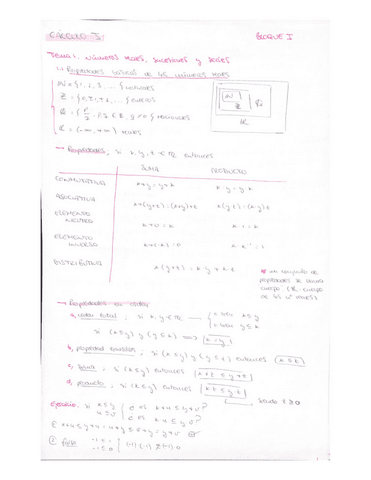 CÁLCULO I. BLOQUE I
Tema 1. Números reales, sucesiones y series
1.1 Propiedades básicas de los números reales
N = {1, 2, 3, ...} naturales
Z = {0, ±1, ±2, ...} enteros
racionales
R = (-∞, +∞) reales
N Z Q R
→ Propiedades, si x, y, z ∈ R entonces
SUMA PRODUCTO
CONMUTATIVA x+y = y+x x·y = y·x
ASOCIATIVA x+(y+z) = (x+y)+z x(y·z) = (x·y)z
ELEMENTO NEUTRO x+0 = x x·1 = x
ELEMENTO INVERSO x+(-x) = 0 x·x⁻¹ = 1
DISTRIBUTIVA x(y+z) = x·y + x·z
un conjunto de
propiedades se llama
cuerpo. (R cuerpo
de los nº reales)
→ Propiedades de orden
a, orden total, si x, y ∈ R → { o bien x ≤ y
o bien y ≤ x
si (x ≤ y) y (y ≤ x) ⟹ x = y
b, propiedad transitiva, si (x ≤ y) y (y ≤ z) entonces x ≤ z
c, suma, si (x ≤ y) entonces x+z ≤ y+z
d, producto, si (x ≤ y) entonces x·z ≤ y·z
siendo z ≥ 0
Ejercicio. si x ≤ y
u ≤ v
¿ es x+u ≤ y+v?
¿ es x·u ≤ y·v?
① x+u ≤ y+u
② falso